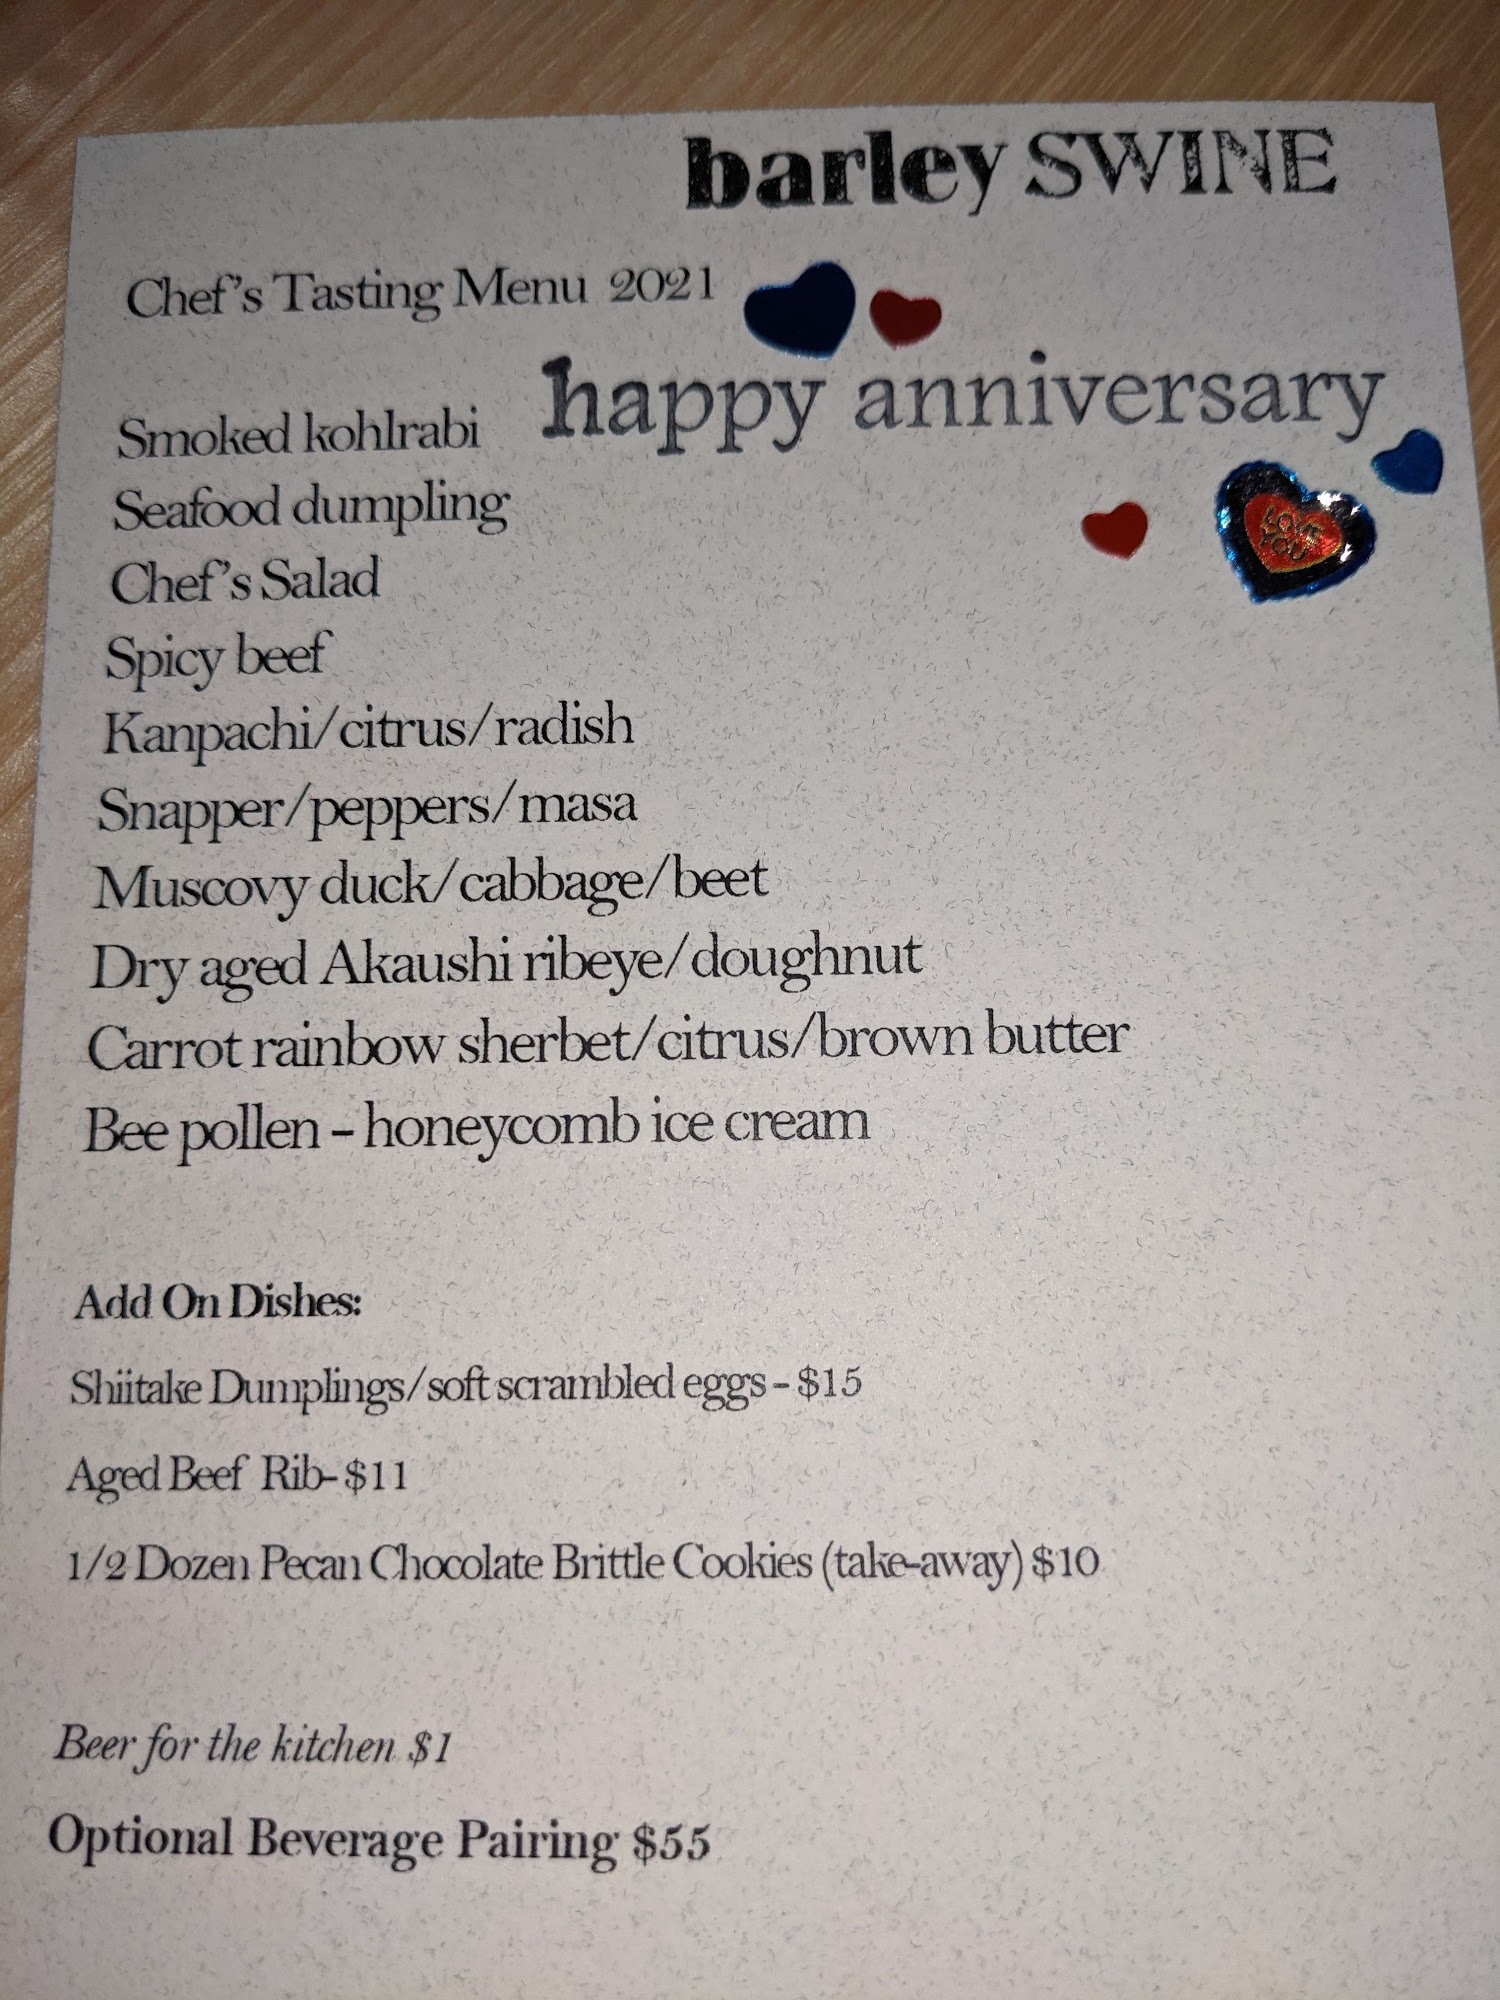 barley SWINE
Chef's Tasting Menu 2021
happy anniversary
LOVE
YOU
Smoked kohlrabi
Seafood dumpling
Chef's Salad
Spicy beef
Kanpachi/citrus/radish
Snapper/peppers/masa
Muscovy duck/cabbage/beet
Dry aged Akaushi ribeye/doughnut
Carrot rainbow sherbet/citrus/brown butter
Bee pollen – honeycomb ice cream
Add On Dishes:
Shiitake Dumplings/soft scrambled eggs - $15
Aged Beef Rib- $11
1/2 Dozen Pecan Chocolate Brittle Cookies (take-away) $10
Beer for the kitchen $1
Optional Beverage Pairing $55